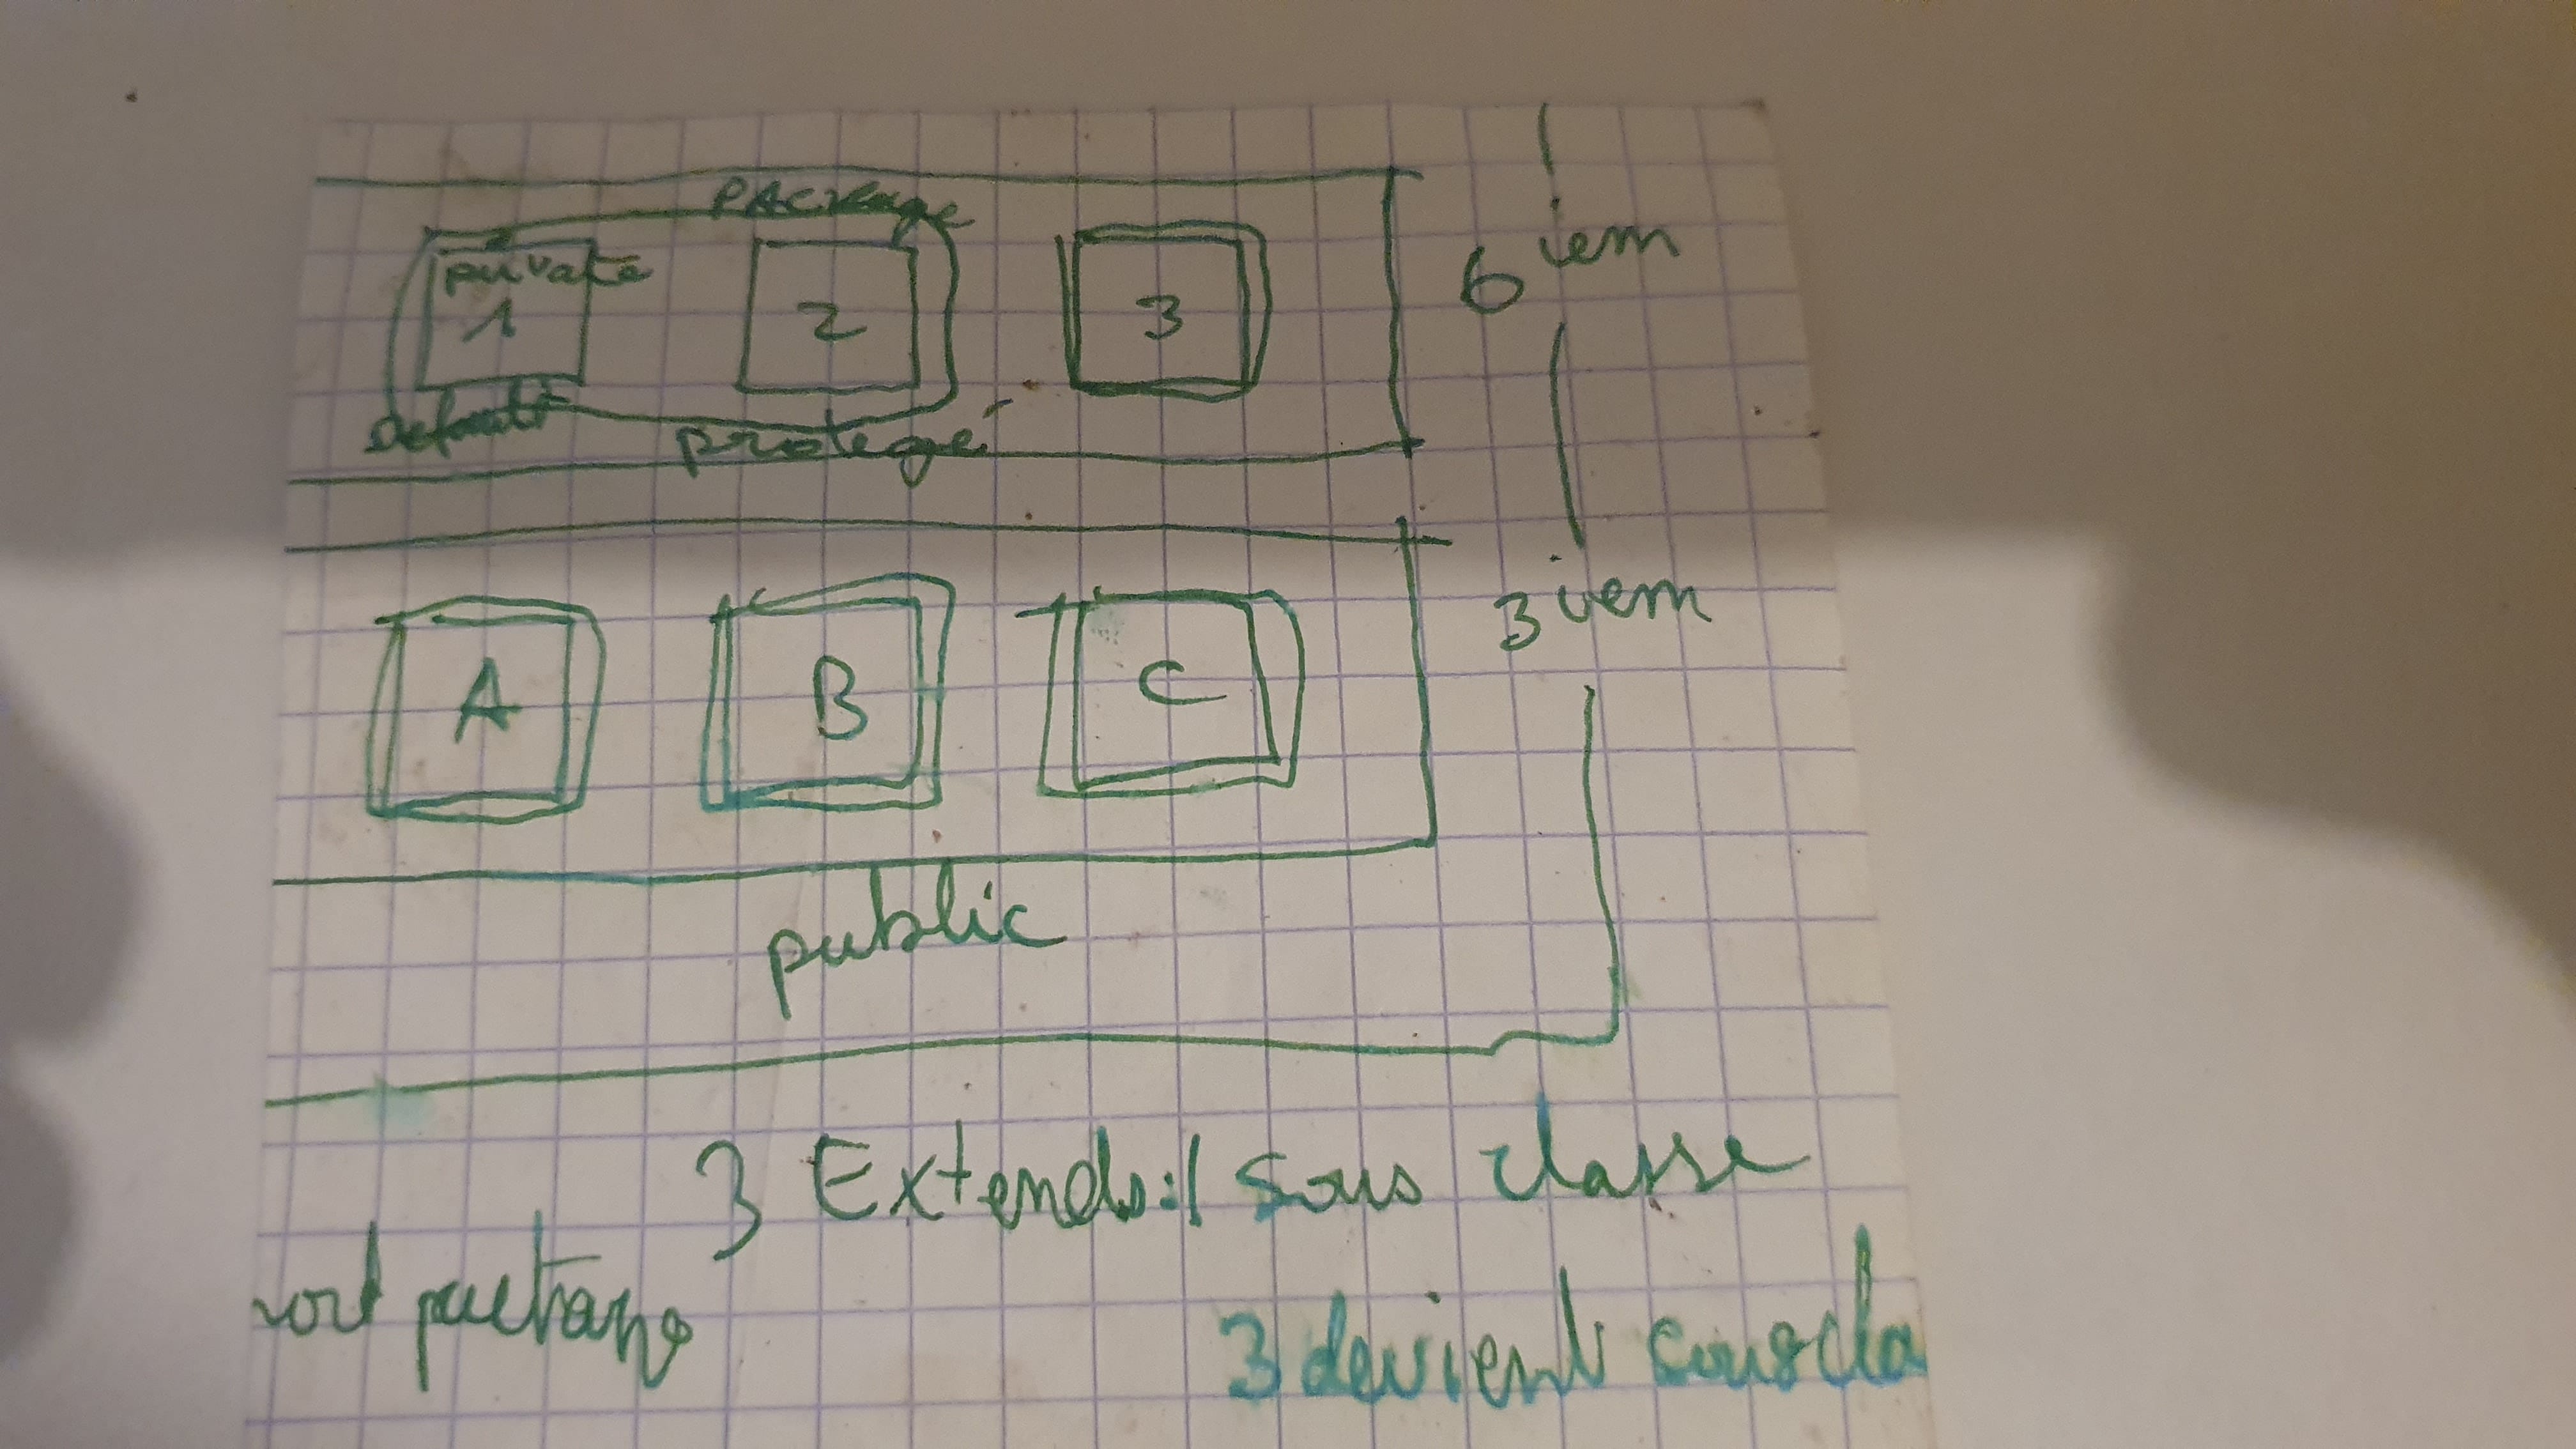 PACKage
private
1 2 3
6 iem
Default
protegé
3 iem
A B C
public
3 Extends:1 sous classe
3 devient sous cla